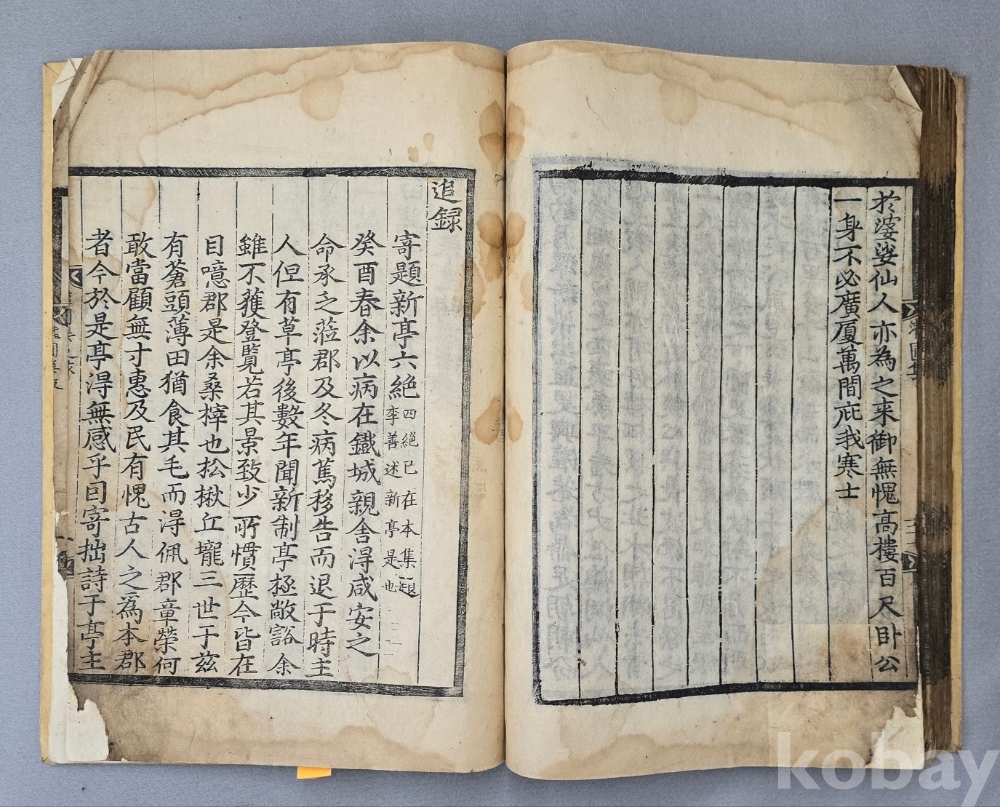 於婆娑仙人亦為之來御無愧高樓百尺卧公
一身不必廣厦萬間庇我寒士
追録
寄題新亭六絶 四絶已在本集題
李善述新亭是也
癸酉春余以病在鐵城親舎得咸安之
命承乏莅郡及冬病篤移告而退于時主
人但有草亭後數年聞新制亭極敞谽余
雖不獲登覧若其景致少所慣歷今皆在
目噫郡是余桑梓也松楸丘壠三世于兹
有蒼頭薄田猶食其毛而得佩郡章榮何
敢當顧無寸惠及民有愧古人之爲本郡
者今於是亭得無感乎曰寄拙詩于亭主
kobay